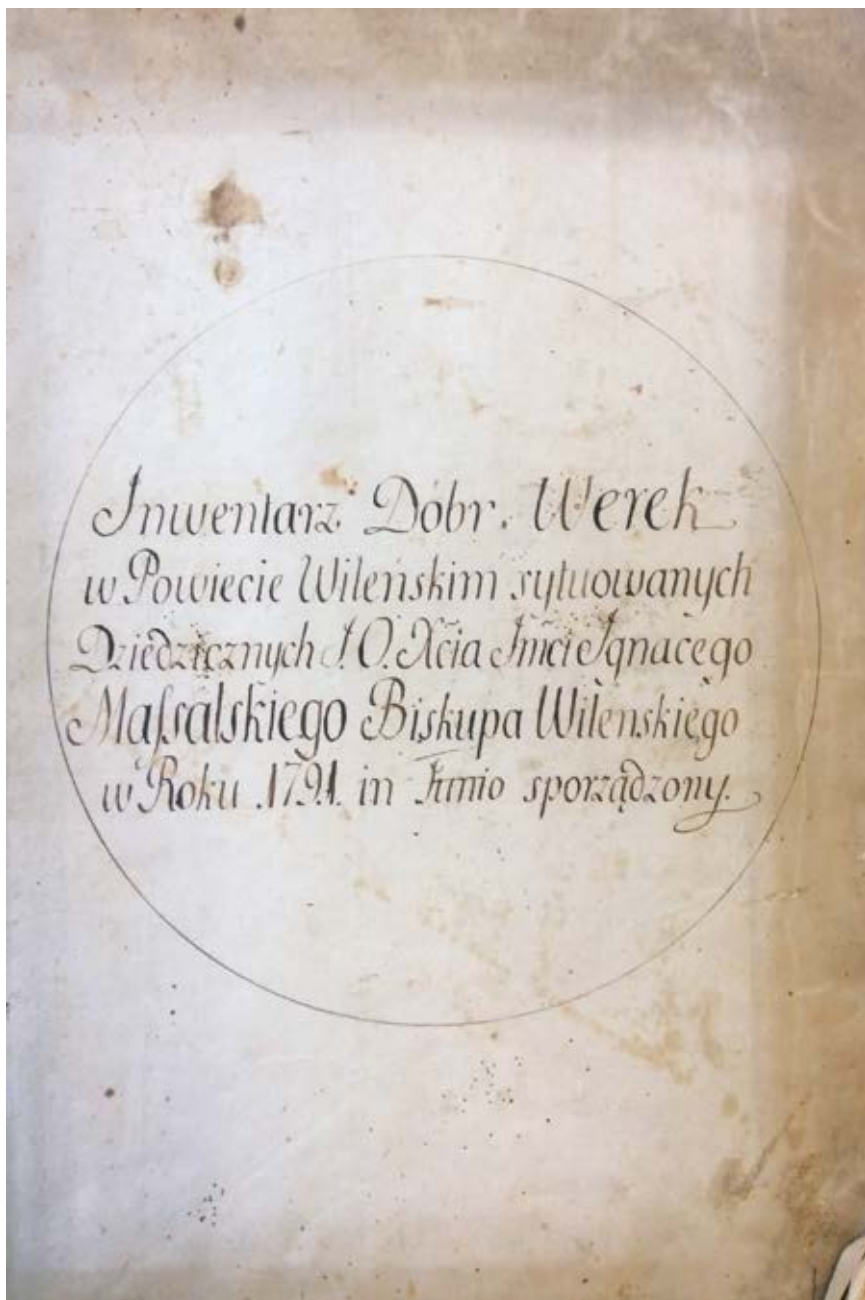 Inwentarz Dóbr. Werek
w Powiecie Wileńskim sytuowanych
Dziedzicznych J. O. Xćia Jmći Ignacego
Maſsalskiego Biskupa Wilenskiego
w Roku 1791. in Junio sporządzony.